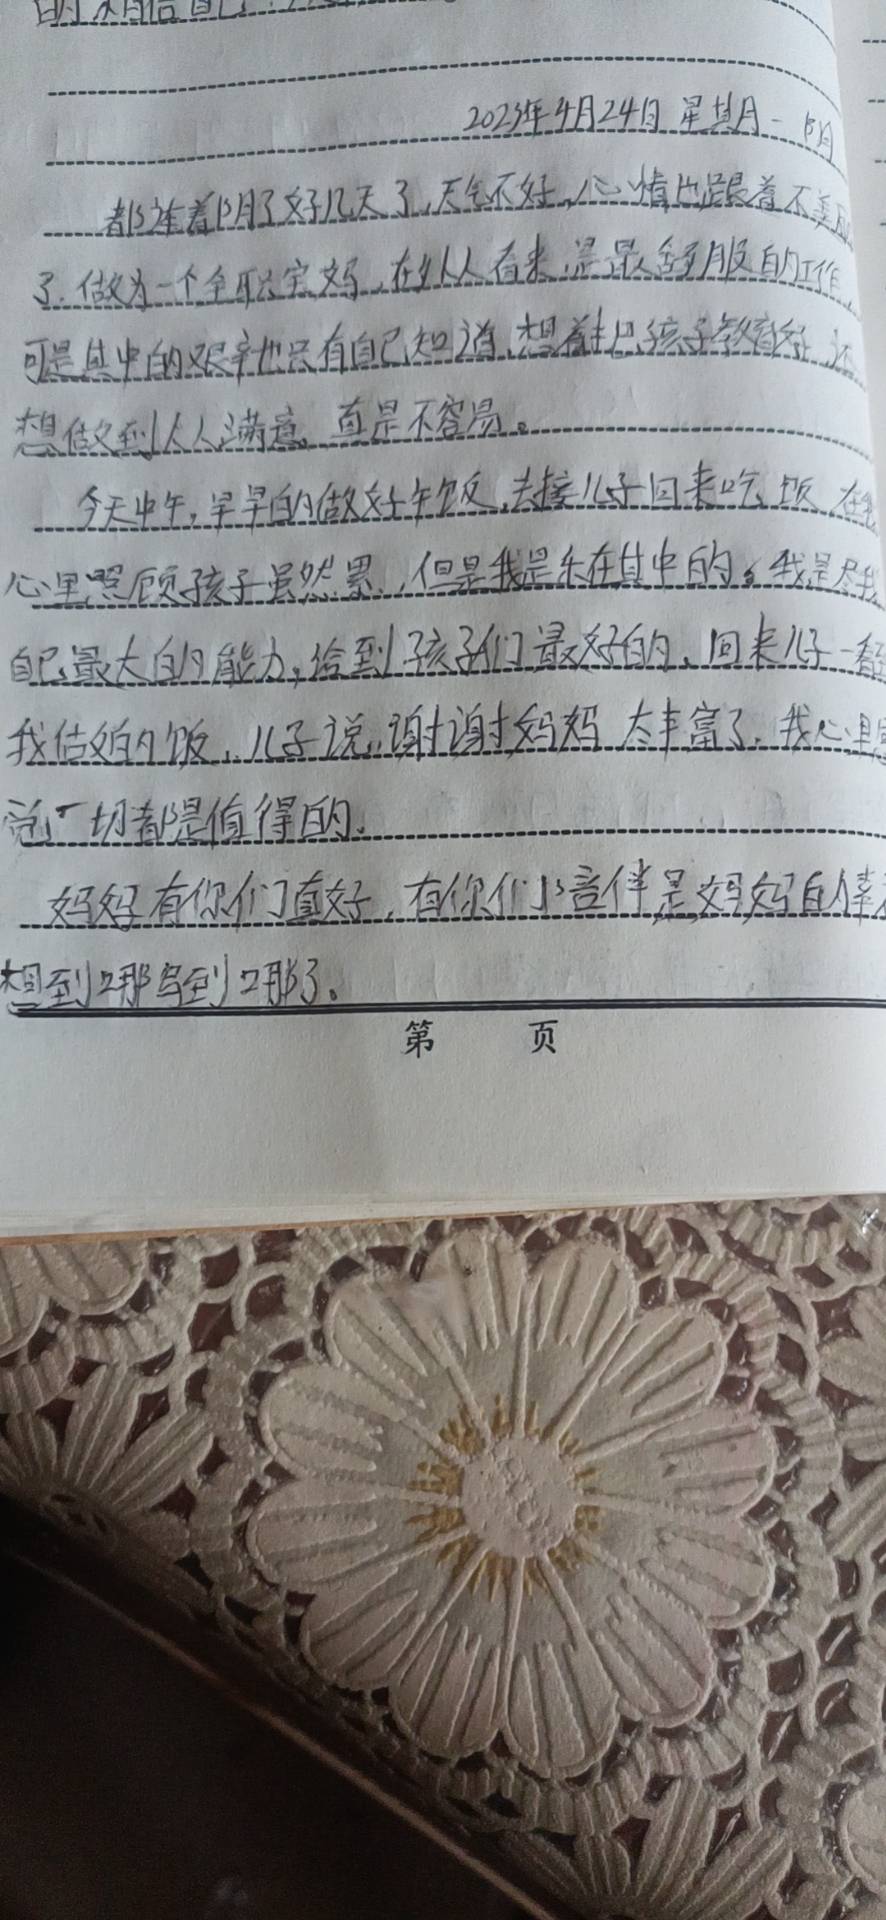 的相信自己
2023年4月24日 星期一 阴
都连着阴了好几天了，天气不好，心情也跟着不美丽
了。做为一个全职宝妈，在外人看来，是最舒服的工作，
可是其中的艰辛也只有自己知道，想着把孩子教育好，还
想做到人人满意，真是不容易。
今天中午，早早的做好午饭，去接儿子回来吃饭，在我
心里照顾孩子虽然累，但是我是乐在其中的。我是尽我
自己最大的能力，给到孩子们最好的，回来儿子一看
我做的饭，儿子说，谢谢妈妈 太丰富了，我心里
觉一切都是值得的。
妈妈有你们真好，有你们陪伴是妈妈的幸
想到哪写到哪了。
第 页